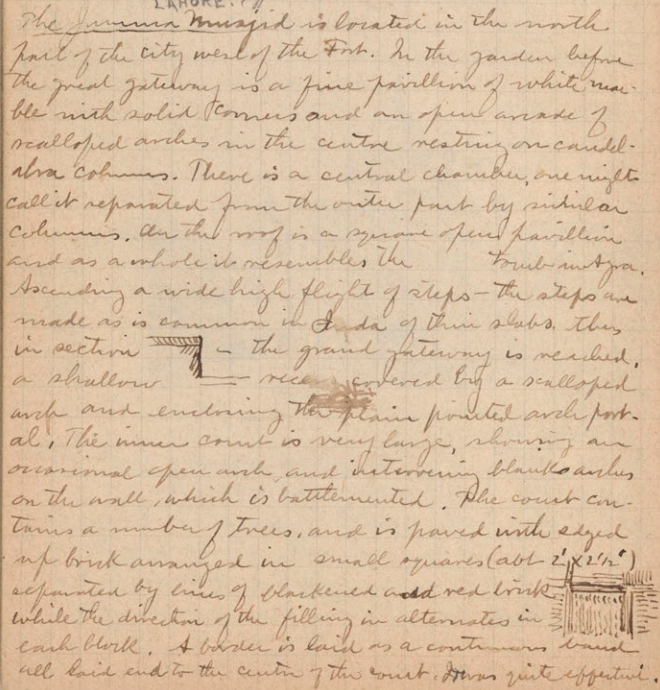 LAHORE.
The Jumma Musjid is located in the north
part of the city west of the Fort. In the garden before
the great gateway is a fine pavillion of white mar-
ble with solid corners and an open arcade of
scalloped arches in the centre resting on candel-
abra columns. There is a central chamber, one might
call it separated from the outer part by similar
columns. On the roof is a square open pavillion
and as a whole it resembles the tomb in Agra.
Ascending a wide high flight of steps - the steps are
made as is common in India of thin slabs, thus
in section - the grand gateway is reached,
a shallow recess covered by a scalloped
arch and enclosing the plain pointed arch port-
al. The inner court is very large, showing an
occasional open arch, and intervening blank arches
on the wall, which is battlemented. The court con-
tains a number of trees, and is paved with edged
up brick arranged in small squares (abt 2' x 2½')
separated by lines of blackened and red brick
while the direction of the filling in alternates in
each block. A border is laid as a continuous band
all laid end to the centre of the court. It was quite effective.